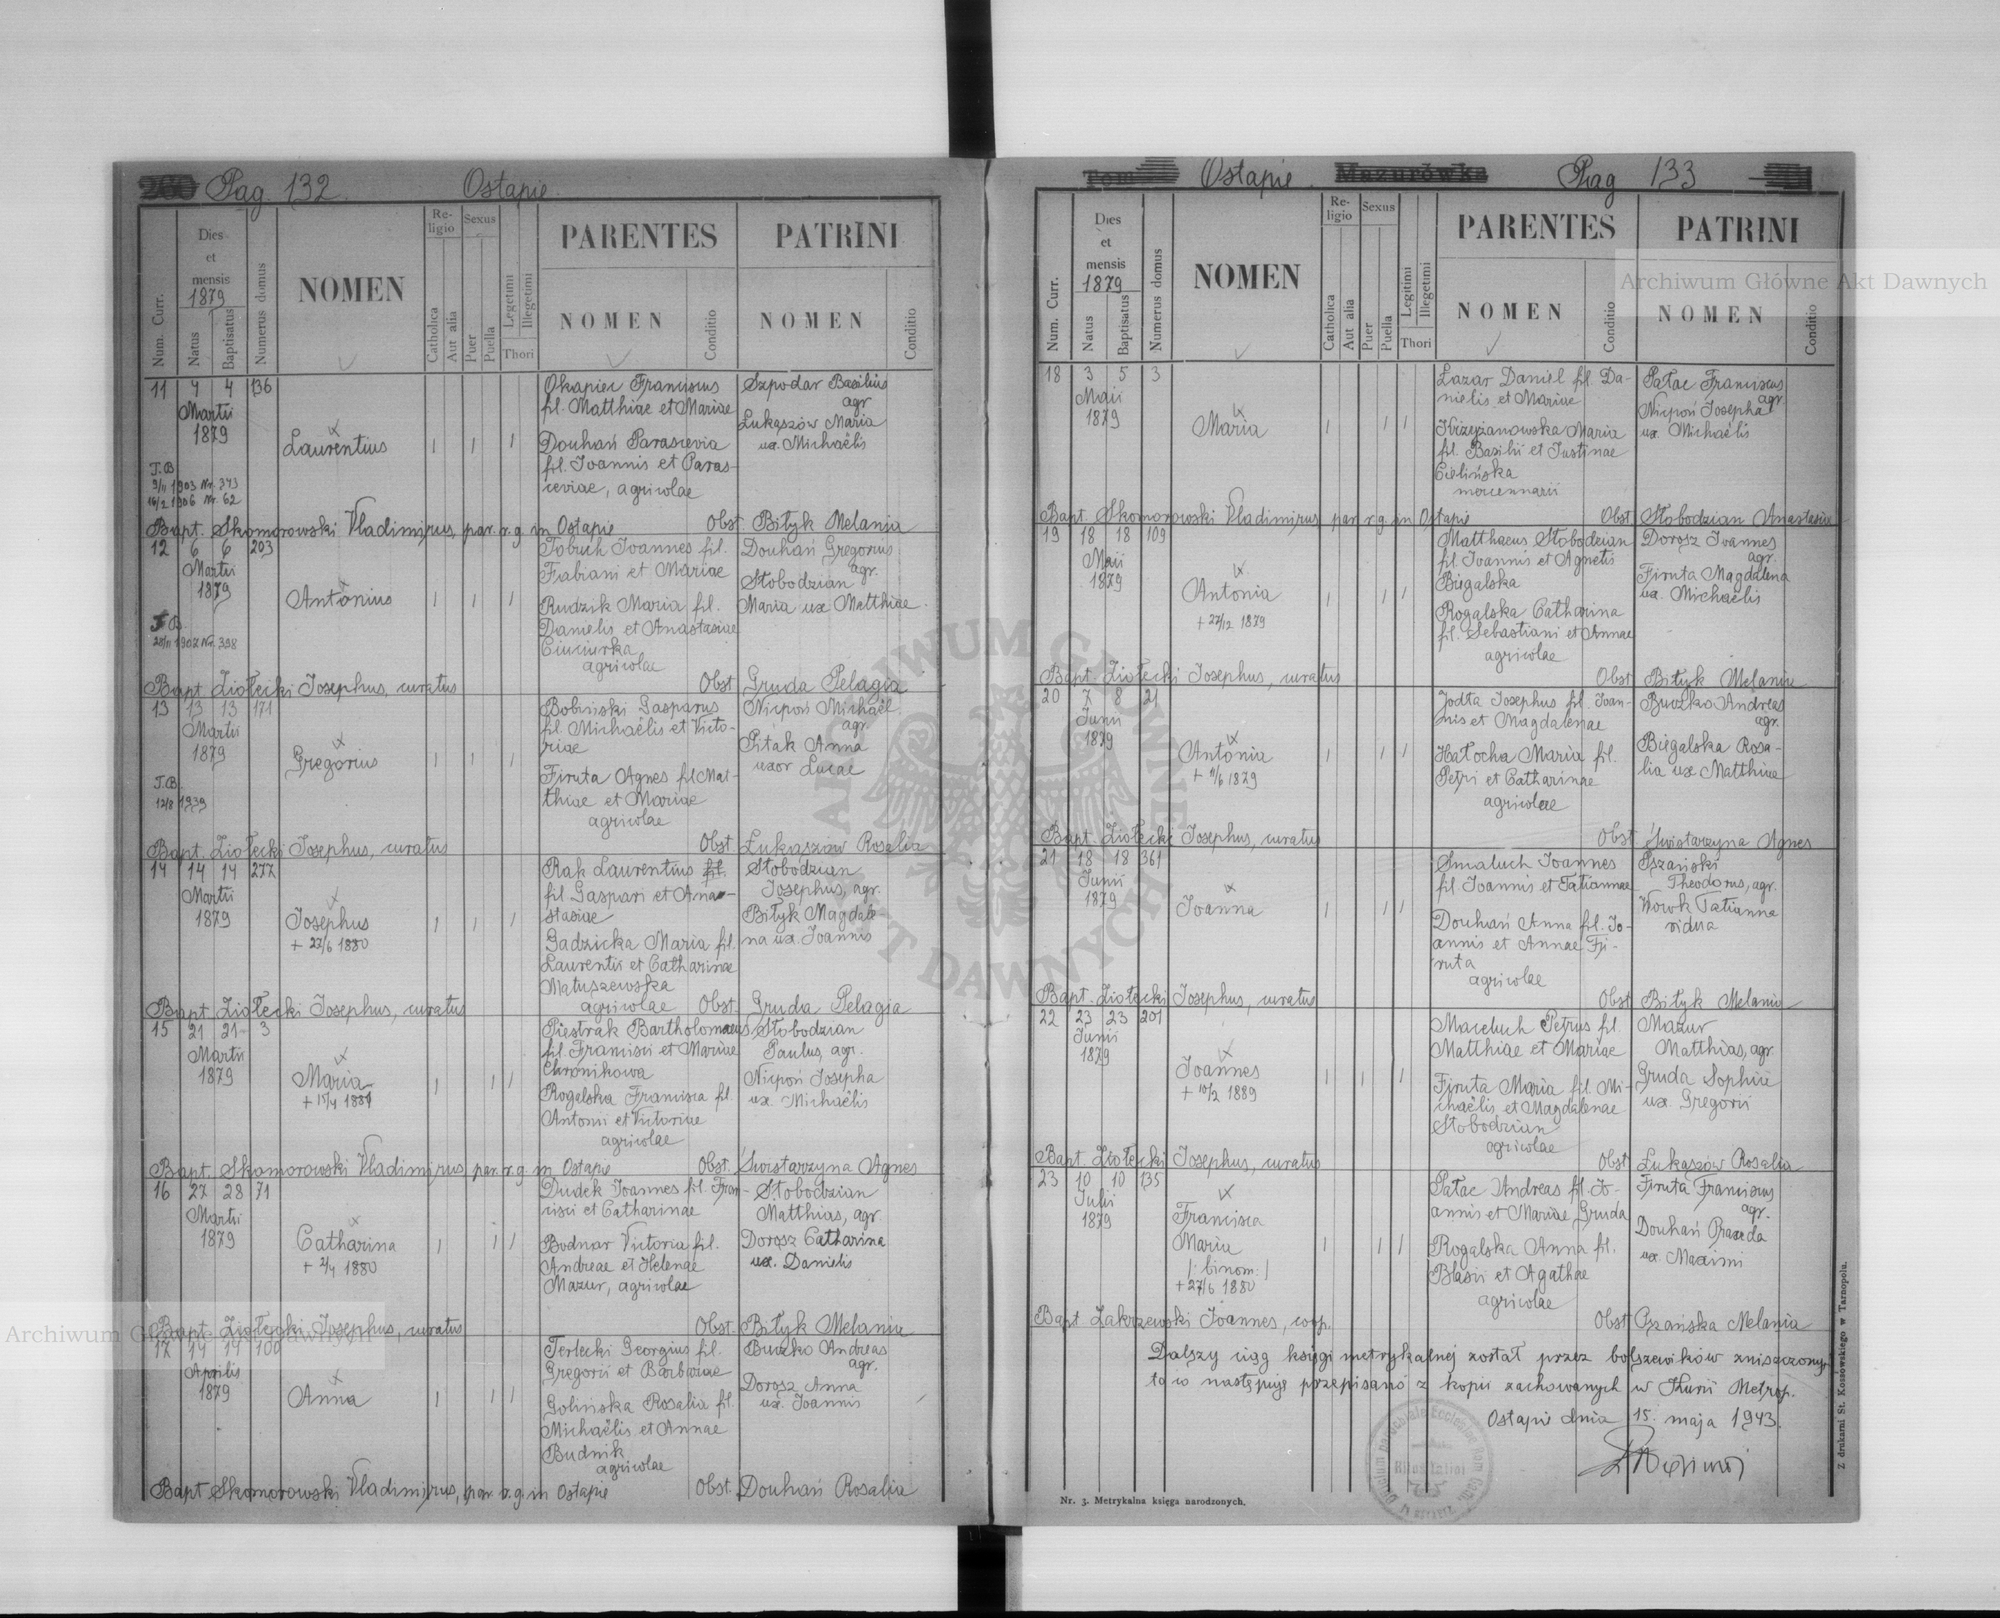 Pag. 132. Ostapie
Num. Curr.
Dies et mensis
1879
Natus
Baptisatus
Numerus domus
NOMEN
Religio
Catholica
Aut alia
Sexus
Puer
Puella
Legetimi
Illegetimi
Thori
PARENTES
NOMEN
Conditio
PATRINI
NOMEN
Conditio
11 4 4 136
Martii
1879
Laurentius
I.B
9/11 1903 Nr. 343
16/2 1906 Nr. 62
Okapiec Franciscus
fil. Matthiae et Mariae
Douhań Parascevia
fil. Ioannis et Paras-
ceviae, agricolae
Szpodar Basilius
agr.
Łukaszów Maria
ux. Michaëlis
Bapt. Skomorowski Vladimirus, par. r. g. in Ostapie Obst. Biłyk Melania
12 6 6 203
Martii
1879
Antonius
1907 Nr. 398
Tobuch Ioannes fil.
Fabiani et Mariae
Rudzik Maria fil.
Danielis et Anastasiae
Ciuciurka
agricolae
Douhań Gregorius
agr.
Słobodzian
Maria ux Matthiae.
Bapt. Ziołecki Iosephus, curatus Obst. Gruda Pelagia
13 13 13 171
Martii
1879
Gregorius
I.B
12/8 1939
Bobiński Gasparus
fil. Michaëlis et Victo-
riae
Firuta Agnes fil Mat-
thiae et Mariae
agricolae
Nicpoń Michaël.
agr.
Pitak Anna
uxor Lucae
Bapt. Ziołecki Iosephus, curatus Obst. Łukaszów Rosalia
14 14 14 277
Martii
1879
Iosephus
+ 27/6 1880
Rak Laurentius fil.
fil. Gaspari et Ana-
stasiae
Gadzicka Maria fil.
Laurentii et Catharinae
Matuszewska
agricolae
Słobodzian
Iosephus, agr.
Biłyk Magdale
na ux. Ioannis
Bapt. Ziołecki Iosephus, curatus Obst. Gruda Pelagia
15 21 21 3
Martii
1879
Maria
+ 15/4 1881
Piestrak Bartholomaeus
fil. Francisci et Mariae
Chronikowa
Rogalska Francisca fil.
Antonii et Victoriae
agricolae
Słobodzian
Paulus, agr.
Nicpoń Iosepha
ux. Michaëlis
Bapt. Skomorowski Vladimirus, par. r. g. in Ostapie Obst. Świstarzyna Agnes
16 27 28 71
Martii
1879
Catharina
+ 2/4 1880
Dudek Ioannes fil. Fran-
cisci et Catharinae
Bodnar Victoria fil.
Andreae et Helenae
Mazur, agricolae
Słobodzian
Matthias, agr.
Dorosz Catharina
ux. Danielis
Bapt. Ziołecki Iosephus, curatus Obst. Biłyk Melania
17 14 14 100
Aprilis
1879
Anna
Terlecki Georgius fil.
Gregorii et Barbarae
Golińska Rosalia fil.
Michaëlis et Annae
Budnik
agricolae
Buczko Andreas
agr.
Dorosz Anna
ux. Ioannis
Bapt. Skomorowski Vladimirus, par. r. g. in Ostapie Obst. Douhań Rosalia
Tom Ostapie. Mazurówka Pag 133
Num. Curr.
Dies et mensis
1879
Natus
Baptisatus
Numerus domus
NOMEN
Religio
Catholica
Aut alia
Sexus
Puer
Puella
Legitimi
Illegetimi
Thori
PARENTES
NOMEN
Conditio
PATRINI
NOMEN
Conditio
18 3 5 3
Maii
1879
Maria
Łazar Daniel fil. Da-
nielis et Mariae
Krzyżanowska Maria
fil. Basilii et Iustinae
Cielińska
mercennarii
Pałac Franciscus
agr.
Nicpoń Iosepha
ux. Michaëlis
Bapt. Skomorowski Vladimirus par r. g. in Ostapie Obst. Słobodzian Anastasia
19 18 18 109
Maii
1879
Antonia
+ 27/12 1879
Matthaeus Słobodzian
fil Ioannis et Agnetis
Biegalska
Rogalska Catharina
fil. Sebastiani et Annae
agricolae
Dorosz Ioannes
agr.
Firuta Magdalena
ux. Michaëlis
Bapt. Ziołecki Iosephus, curatus Obst Biłyk Melania
20 7 8 21
Iunii
1879
Antonia
+ 11/6 1879
Jodła Iosephus fil. Ioan-
nis et Magdalenae
Hałocha Maria fil.
Petri et Catharinae
agricolae
Buczko Andreas
agr.
Biegalska Rosa-
lia ux Matthiae
Bapt. Ziołecki Iosephus, curatus Obst. Świstarzyna Agnes
21 18 18 361
Iunii
1879
Ioanna
Smaluch Ioannes
fil Ioannis et Tatiannae
Douhań Anna fil. Io-
annis et Annae Fi-
ruta
agricolae
Theodorus, agr.
Wowk Tatianna
vidua
Bapt. Ziołecki Iosephus, curatus Obst Biłyk Melania
22 23 23 201
Iunii
1879
Ioannes
+ 10/2 1889
Maceluch Petrus fil.
Matthiae et Mariae
Firuta Maria fil. Mi-
chaëlis et Magdalenae
Słobodzian
agricolae
Mazur
Matthias, agr
Gruda Sophia
ux. Gregorii
Bapt. Ziołecki Iosephus, curatus Obst Łukaszów Rosalia
23 10 10 135
Iulii
1879
Francisca
Maria
/: binom: /
+ 27/6 1880
Pałac Andreas fil. Io-
annis et Mariae Gruda
Rogalska Anna fil.
Blasii et Agathae
agricolae
Firuta Franciscus
agr.
Douhań Praxeda
ux. Maximi
Bapt Zakrzewski Ioannes, coop. Obst Melania
Dalszy ciąg księgi metrykalnej został przez bolszewików zniszczony,
to co następuje przepisano z kopii zachowanych w Kurii Metrop.
Ostapie dnia 15. maja 1943.
Nr. 3. Metrykalna księga narodzonych.
Z drukarni St. Koszowskiego w Tarnopolu.
Archiwum Główne Akt Dawnych
ARCHIWUM GŁÓWNE AKT DAWNYCH
Archiwum Główne Akt Dawnych